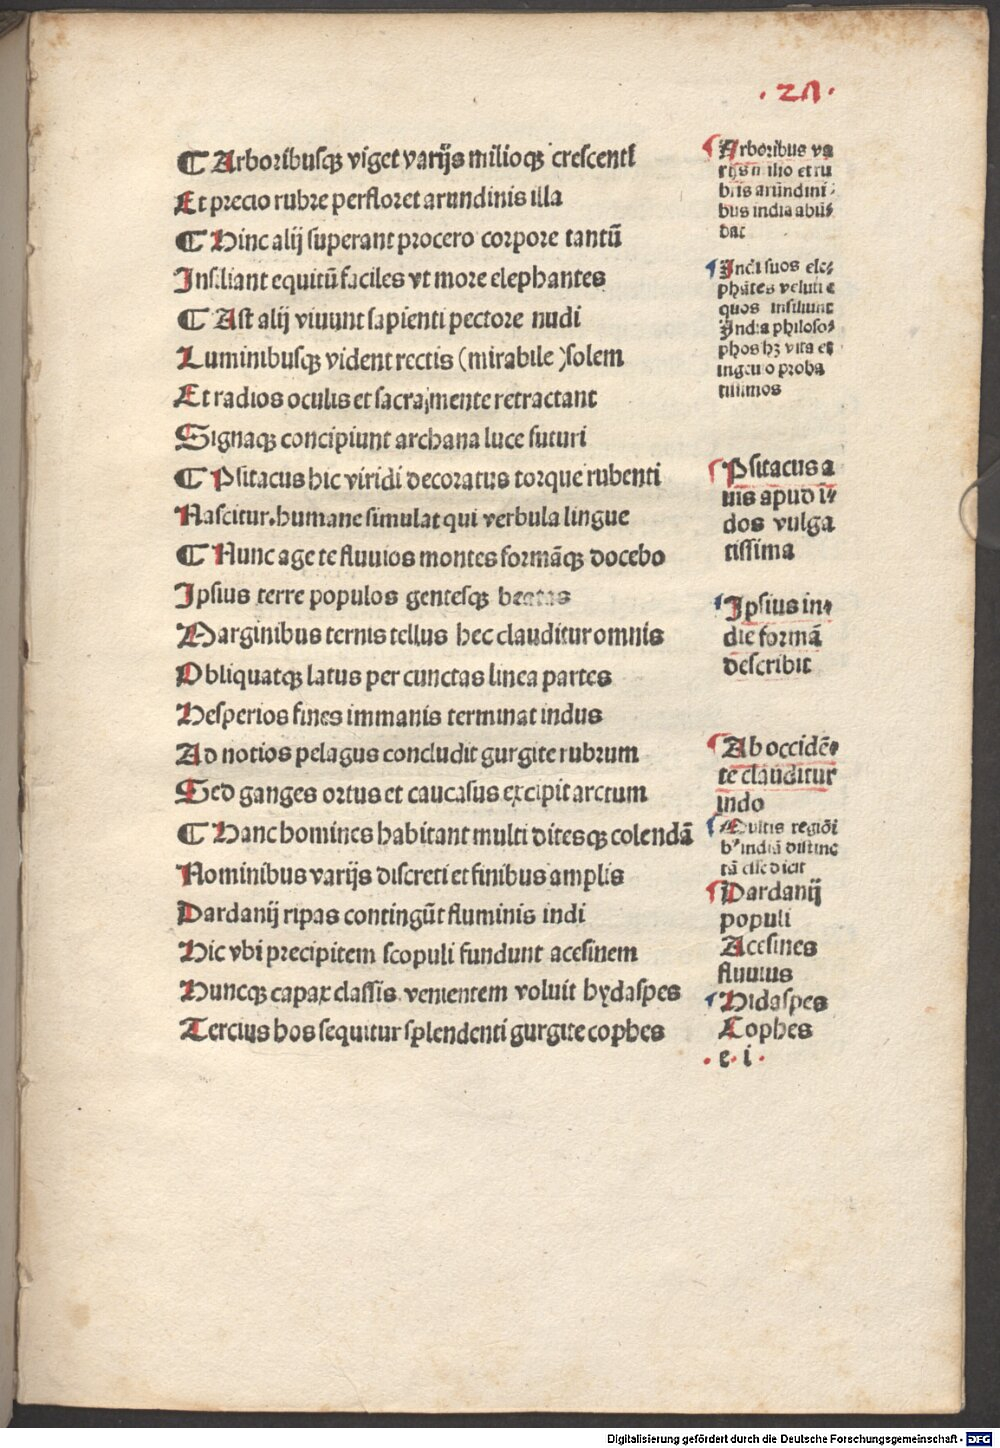 .2Λ.
¶ Arboribusqꝫ viget varijs milioqꝫ crescenti
Et precio rubre perfloret arundinis illa
¶ Hinc alij superant procero corpore tantū
Insiliant equitū faciles vt more elephantes
¶ Ast alij viuunt sapienti pectore nudi
Luminibusqꝫ vident rectis (mirabile )solem
Et radios oculis et sacra mente retractant
Signaqꝫ concipiunt archana luce futuri
¶ Psitacus hic viridi decoratus torque rubenti
Nascitur.humane simulat qui verbula lingue
¶ Nunc age te fluuios montes formāqꝫ docebo
Ipsius terre populos gentesqꝫ beatas
Marginibus ternis tellus hec clauditur omnis
Obliquatqꝫ latus per cunctas linea partes
Hesperios fines immanis terminat indus
Ad notios pelagus concludit gurgite rubrum
Sed ganges ortus et caucasus excipit arctum
¶ Hanc homines habitant multi ditesqꝫ colendā
Nominibus varijs discreti et finibus amplis
Dardanij ripas contingūt fluminis indi
Hic vbi precipitem scopuli fundunt acesinem
Huncqꝫ capax classis venientem voluit hydaspes
Tercius hos sequitur splendenti gurgite cophes
Arboribus va
rijs milio et ru
bris arūdini
bus india abū
dat
Indi suos ele
phātes veluti e
quos insiliunt
India philoso
phos hꝫ vita et
ingenio proba
tissimos
Psitacus a
uis apud ī
dos vulga
tissima
Ipsius in
die formā
describit
Ab occidē
te clauditur
indo
Multis regiōi
bꝰ indiā distinc
tā esse dicit
Dardanij
populi
Acesines
fluuius
Hidaspes
Cophes
. e. i .
Digitalisierung gefördert durch die Deutsche Forschungsgemeinschaft - DFG